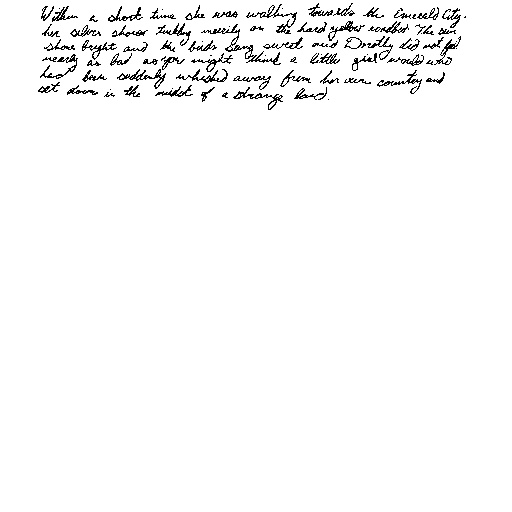 Within a short time she was walking towards the Emerald City,
her silver shoes tinkling merrily on the hard yellow roadbed. The sun
shone bright and the birds sang sweet and Dorothy did not feel
nearly as bad as you might think a little girl would who
had been suddenly whisked away from her own country and
set down in the midst of a strange land.